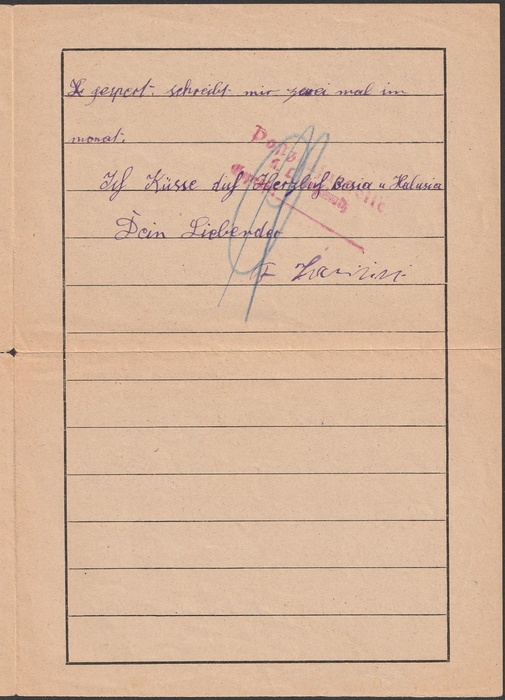 gesperrt. schreibt mir zwei mal im
monat.
Ich Küsse dich Herzlich Basia u Halusia
Dein Liebender